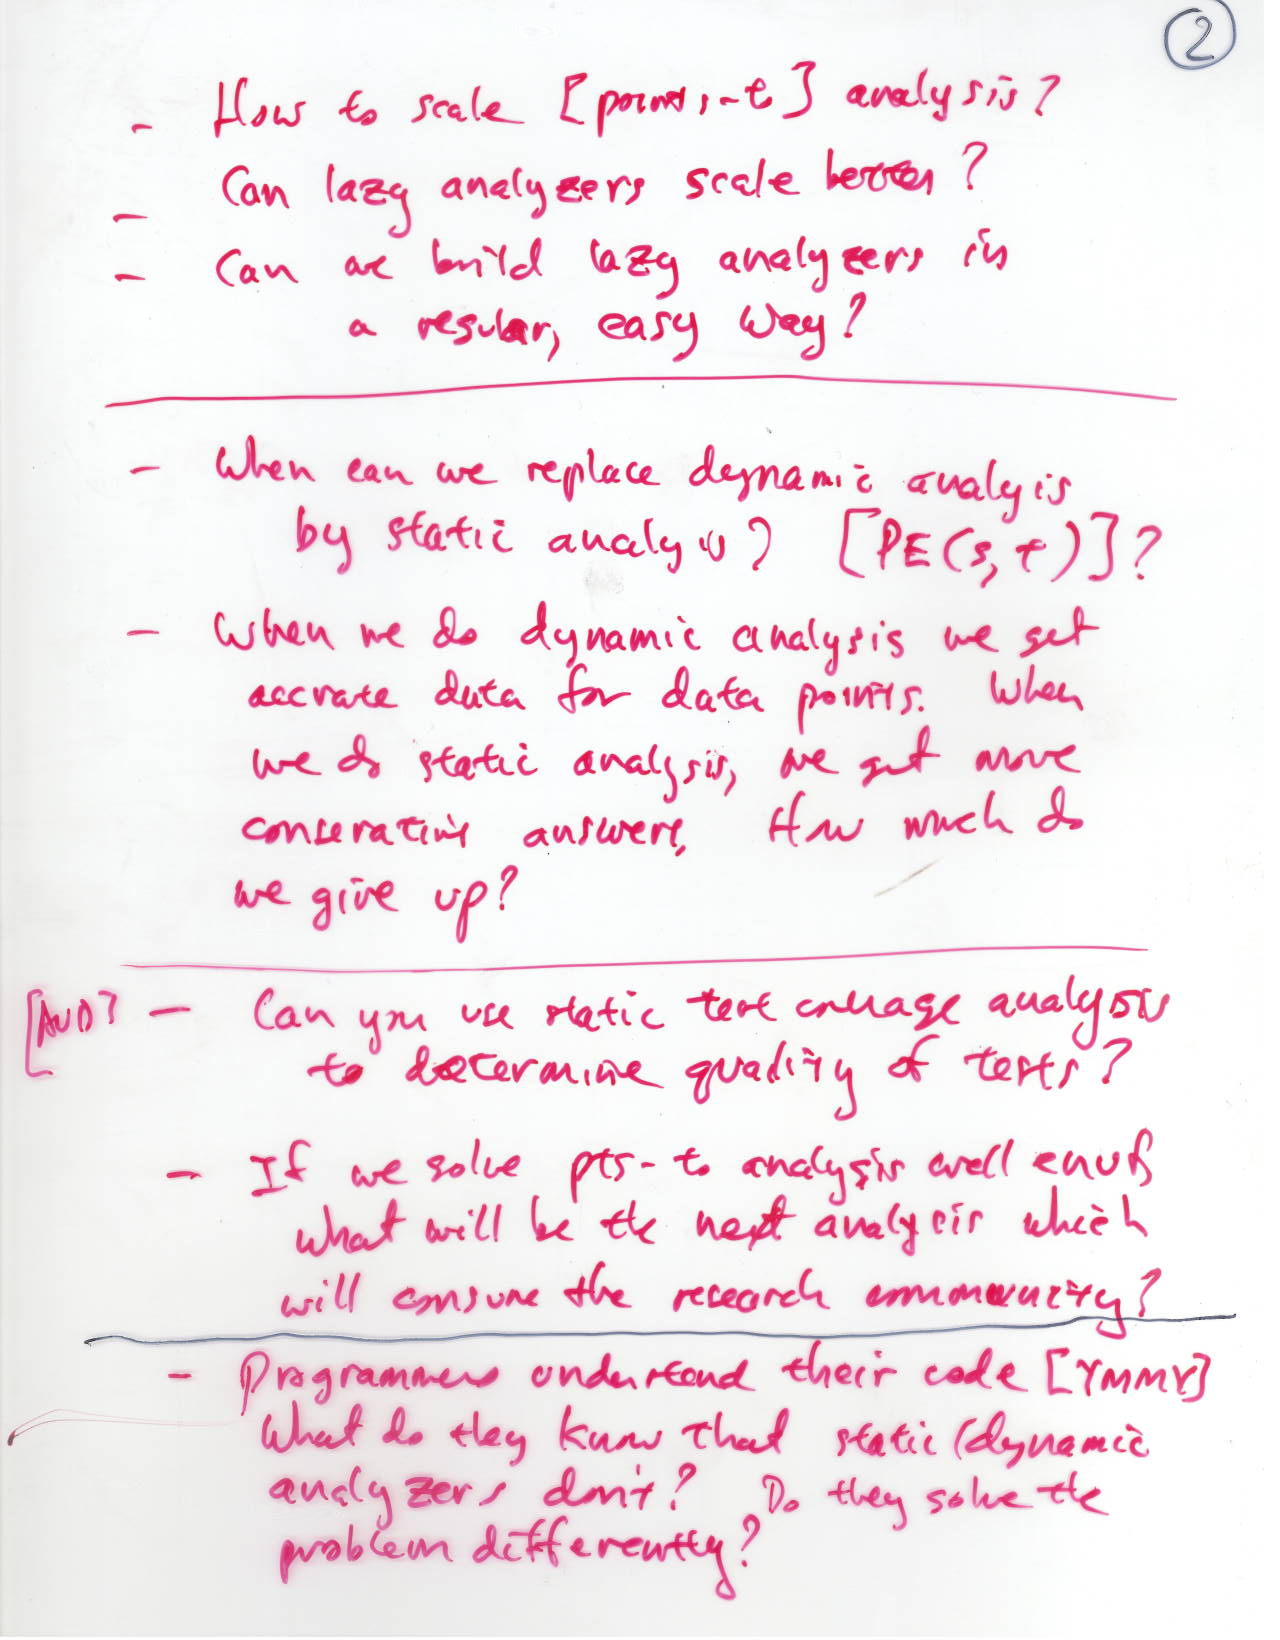 2
- How to scale [points-to] analysis?
- Can lazy analyzers scale better?
- Can we build lazy analyzers in
a regular, easy way?
- When can we replace dynamic analyis
by static analysis? [PE(s,t)]?
- When we do dynamic analysis we get
accrate data for data points. When
we do static analysis, we get more
conserative answers. How much do
we give up?
[AUD? - Can you use static test coverage analysis
to determine quality of tests?
- If we solve pts-to analysis well enuf
what will be the next analysis which
will consume the research community?
- Programmers understand their code [YMMV]
What do they know that static/dynamic
analyzers don't? Do they solve the
problem differently?